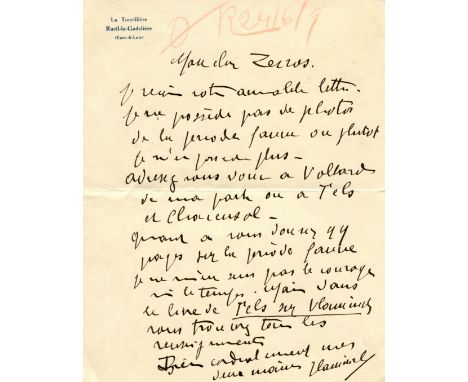 La Tourillière
Rueil-la-Gadelière
(Eure-&-Loir)
R 24/6/9
Mon cher Zervos.
Je reçois votre aimable lettre.
Je ne possède pas de photos
de la période fauve ou plutôt
je n'en possède plus -
adressez vous donc à Vollard
de ma part ou à Fels
et Charensol -
quant à vous donner qq
pages sur la période fauve
je ne m'en sens pas le courage
ni le temps. Mais dans
le livre de Fels sur Vlaminck
vous trouverez tous les
renseignements
Bien cordialement mes
deux mains Vlaminck